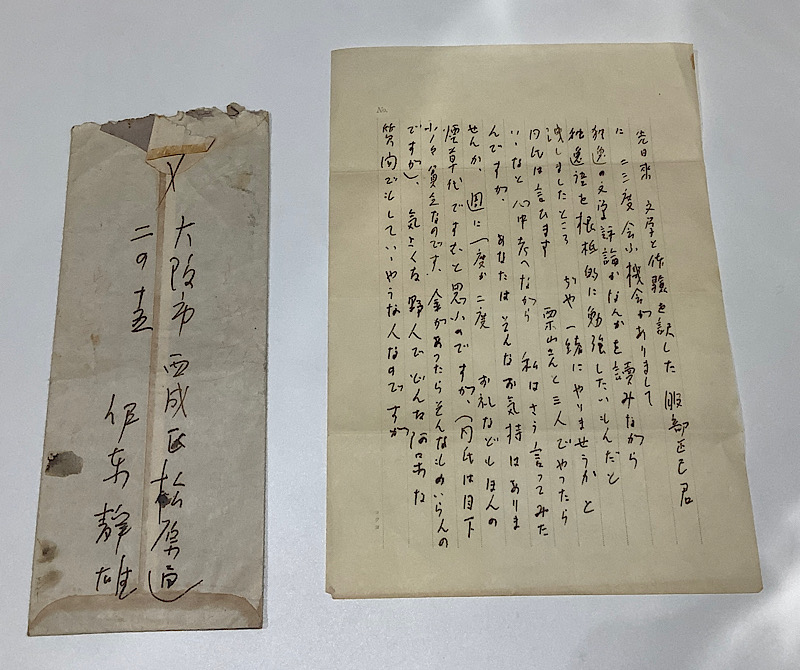 〆
大阪市西成区松原通
二の十五
伊東靜雄
No.
先日来 文学と体験を訳した 服部正己君
に 二三度会ふ機会がありまして
独逸の文学評論かなんかを讀みながら
独逸語を根柢的に勉強したいもんだと
洩しましたところ ぢや一緒にやりませうかと
同氏は言ひます 栗山さんと三人でやつたら
いいなと心中考へながら 私はさう言つてみた
んですが、 あなたはそんなお気持はありま
せんか、週に一度か二度 お礼などもほんの
煙草代ですむと思ふのですが、(同氏は目下
少々貧乏なのです、金があつたらそんなものいらんの
ですが)、野人で どんな阿呆な
質問でもしていいやうな人なのですが